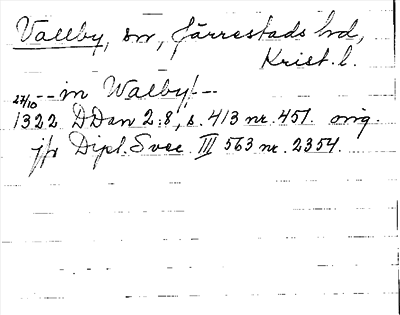 Vallby, sn, Järrestads hd,
Krist. l.
27/10 -- in Walby! --
1322 DDan 2:8, s. 413 nr. 451. orig.
jfr Dipl. Svec. III 563 nr. 2354.